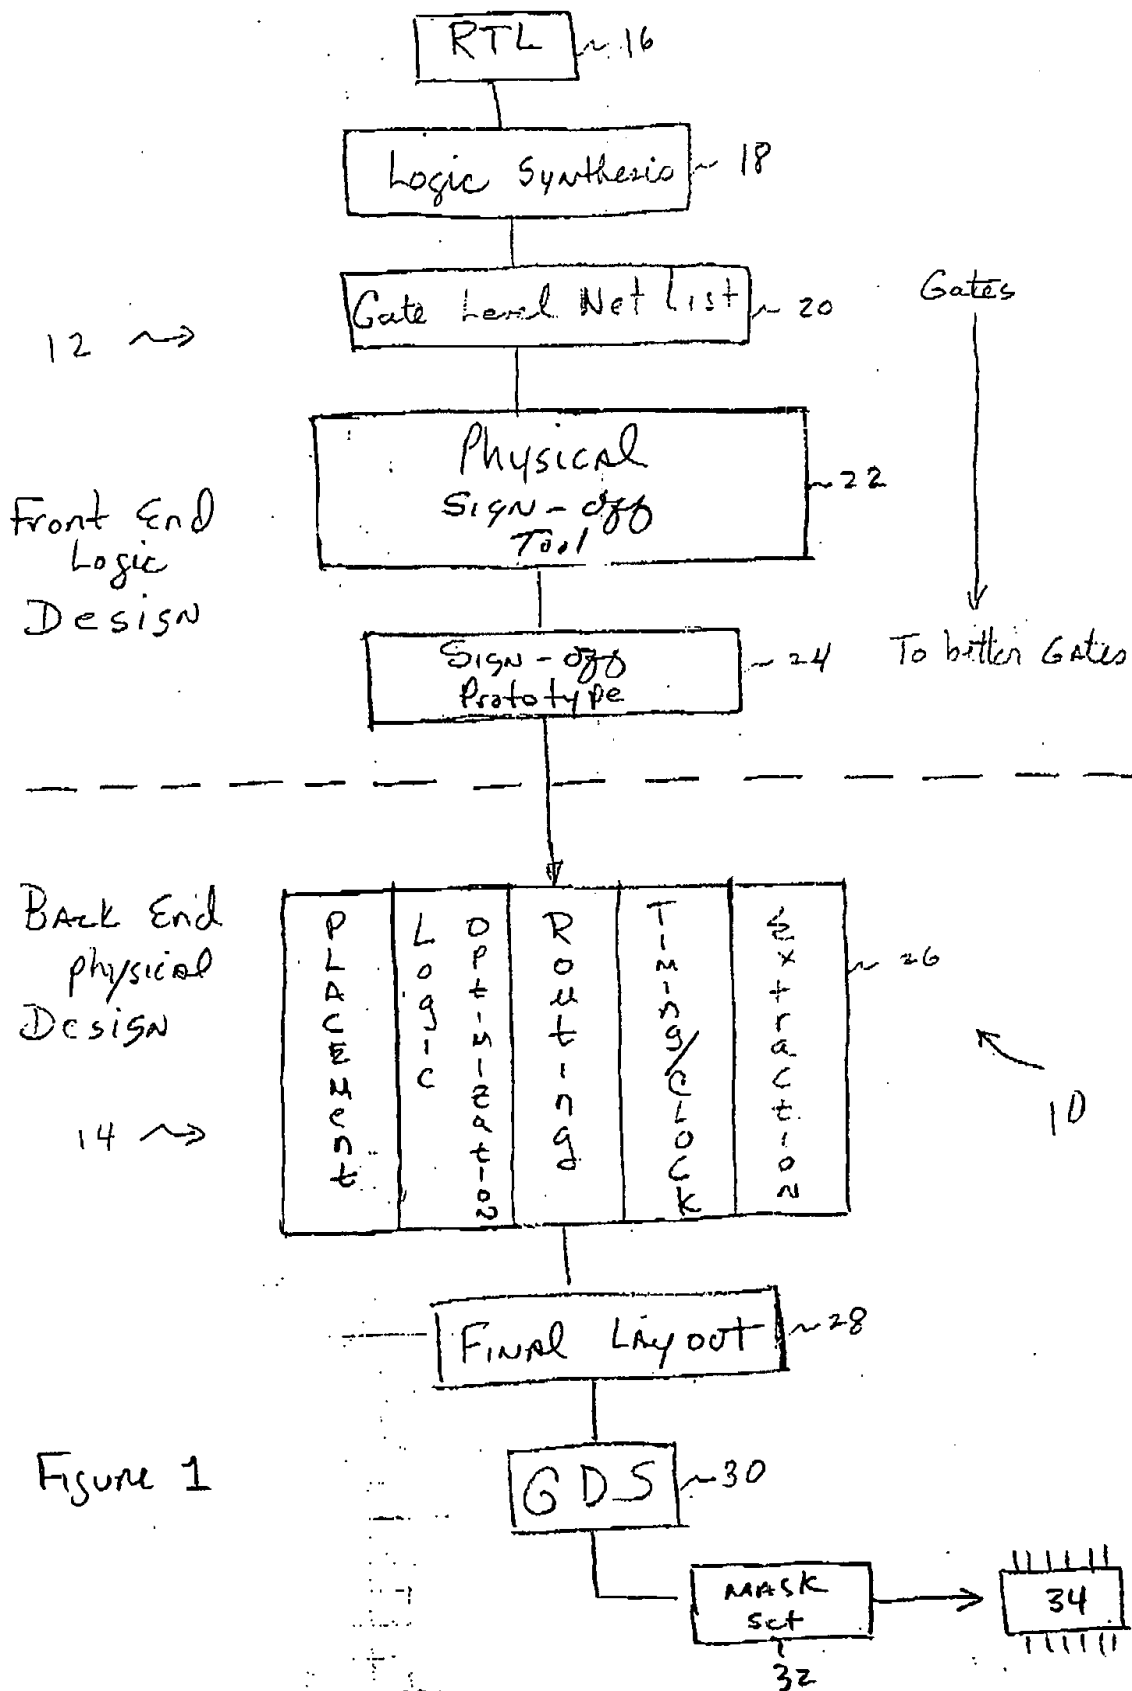 RTL 16
Logic Synthesis 18
Gate Level Net List 20
Gates
12
Physical
Sign-off
Tool
22
Front End
Logic
Design
Sign-off
Prototype
24
To better Gates
Back End
physical
Design
PLACEMent
Logic
Optimization
Routing
Timing/Clock
Extraction
26
10
14
Final Layout 28
Figure 1
GDS 30
Mask
Set
32
34